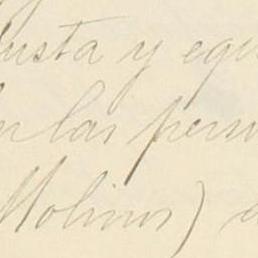 justa y equi
las perso
Molinos)